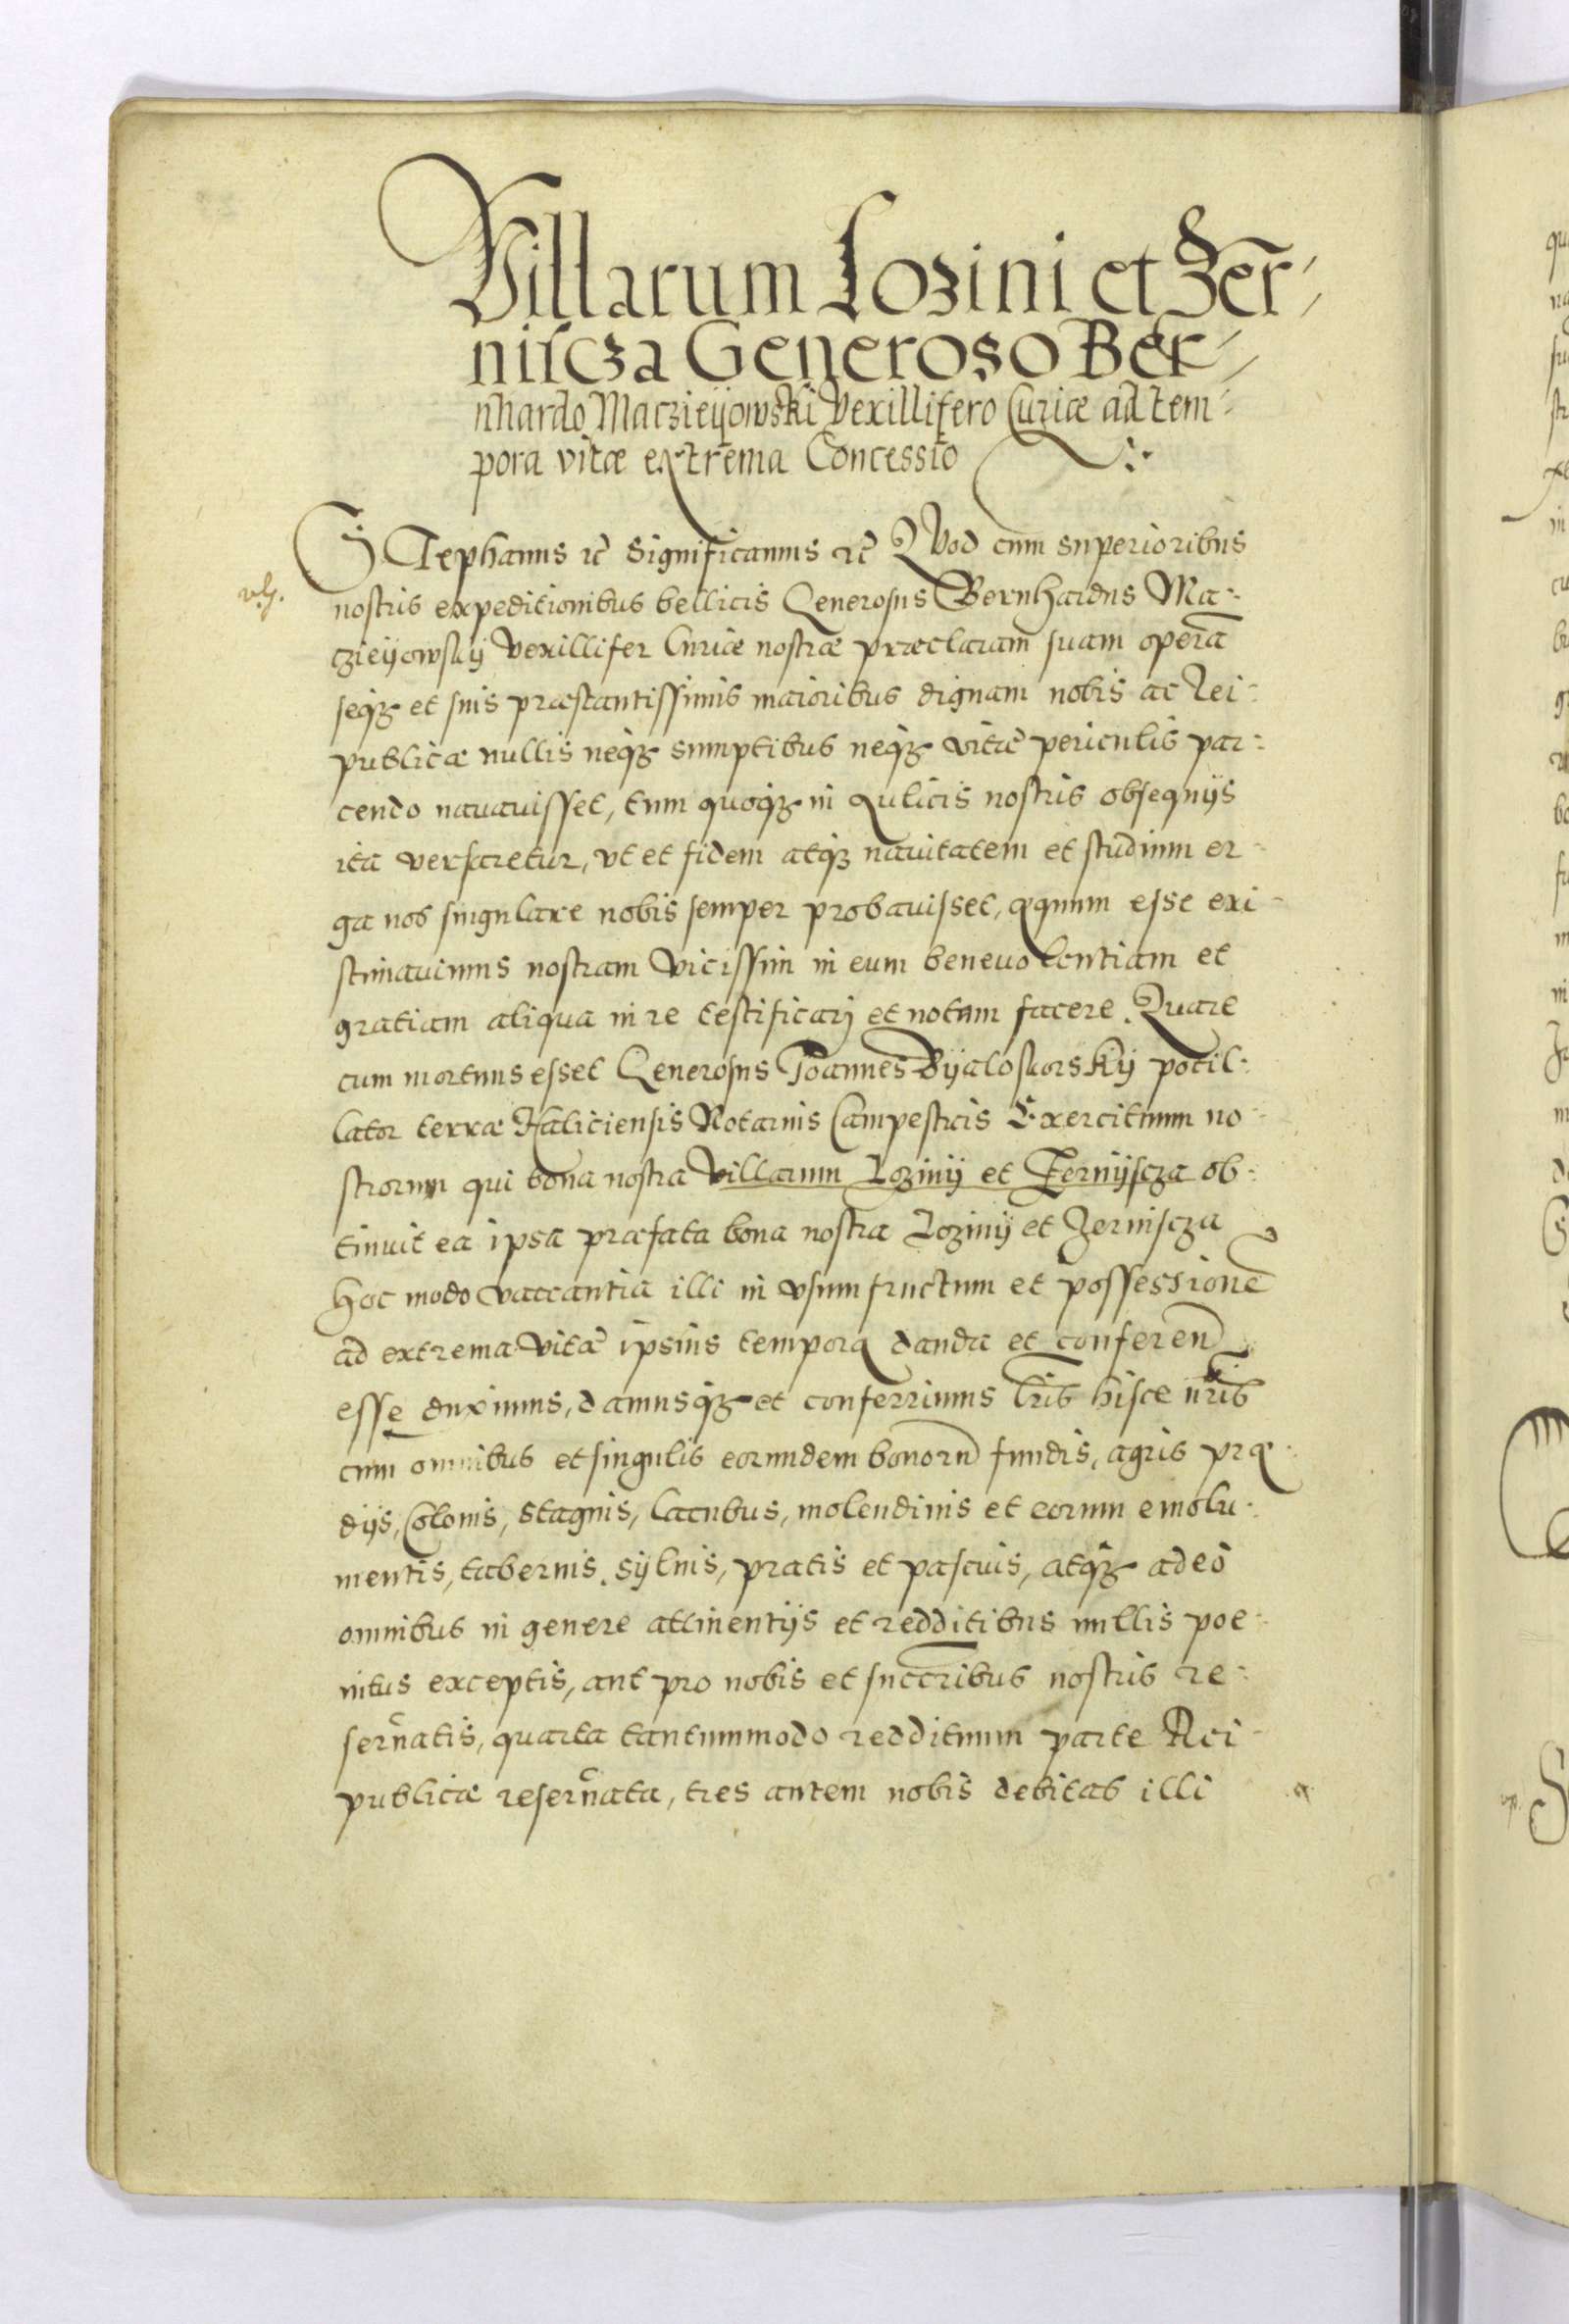 Villarum Lozini et Zer-
niscza Generoso Ber-
nhardo Maczieijowski Vexillifero Curiæ ad tem-
pora vitæ extrema Concessio
STephanus ꝛc̃ Significamus ꝛc̃ QVod cum superioribus
nostris expeditionibus bellicis Generosus Bernhardus Ma-
czieijowskij Vexillifer Curiæ nostræ præclaram suam operã
seqꝫ et suis præstantissimis maioribus dignam nobis ac Rei-
publicæ nullis neqꝫ sumptibus neqꝫ vitæ periculis par-
cendo nauauisset, tum quoqꝫ in Aulicis nostris obsequijs
ita versaretur, vt et fidem atqꝫ nauitatem et studium er-
ga nos singulare nobis semper probauisset, æquum esse exi-
stimauimus nostram vicissim in eum beneuolentiam et
gratiam aliqua in re testificarj et notam facere. Quare
cum mortuus esset Generosus Joannes Bijaloskorskij pocil-
lator terræ Haliciensis Notarius Campestris Exercituum no-
strorum qui bona nostra Villarum Lozinij et Zernijscza ob-
tinuit ea ipsa præfata bona nostra Lozinij et Zerniscza
hoc modo vaccantia illi in vsumfructum et possessionẽ
ad extrema vitæ ipsius tempora danda et conferen̄
esse duximus, damusqꝫ et conferrimus l̃ris hisce ñris
cum omnibus et singulis eorundem bonorũ fundis, agris præ-
dijs, Colonis, stagnis, lacubus, molendinis et eorum emolu-
mentis, tabernis. syluis, pratis et pascuis, atqꝫ adeò
omnibus in genere attinentijs et redditibus nullis poe-
nitus exceptis, aut pro nobis et succ̃ribus nostris re-
seruatis, quarta tantummodo reddituum parte Rei-
publicæ reseruata, tres autem nobis debitas illi